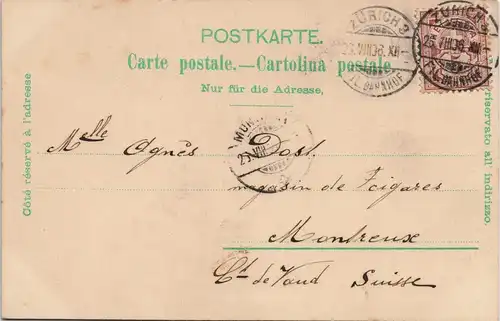 POSTKARTE.
Carte postale.—Cartolina postale.
Nur für die Adresse,
Côté réservé à l'adresse
riservato all indirizzo.
ZÜRICH
FIL. BAHNHOF
ZÜRICH
25. VIII
FIL. BAHNHOF
Melle Agnès Dost
magasin de Cigares
Montreux
Ct de Vaud Suisse